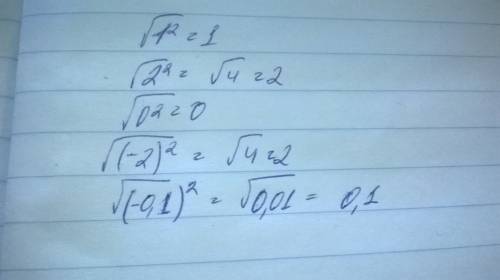 √1² = 1
√2² = √4 = 2
√0² = 0
√(-2)² = √4 = 2
√(-0,1)² = √0,01 = 0,1